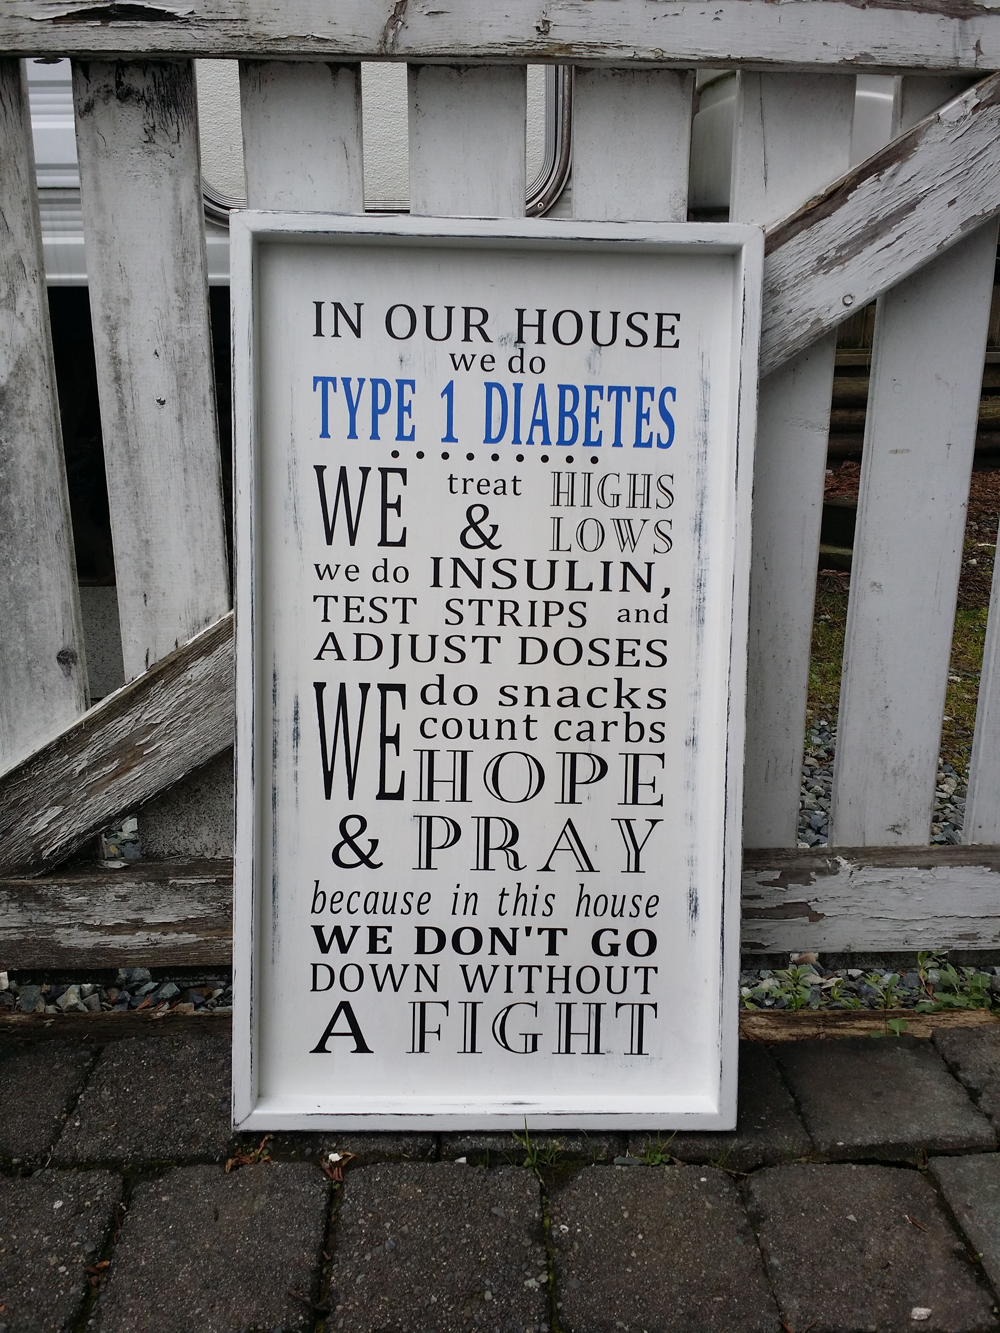 IN OUR HOUSE
we do
TYPE 1 DIABETES
WE treat HIGHS
& LOWS
we do INSULIN,
TEST STRIPS and
ADJUST DOSES
WE do snacks
count carbs
HOPE
& PRAY
because in this house
WE DON'T GO
DOWN WITHOUT
A FIGHT